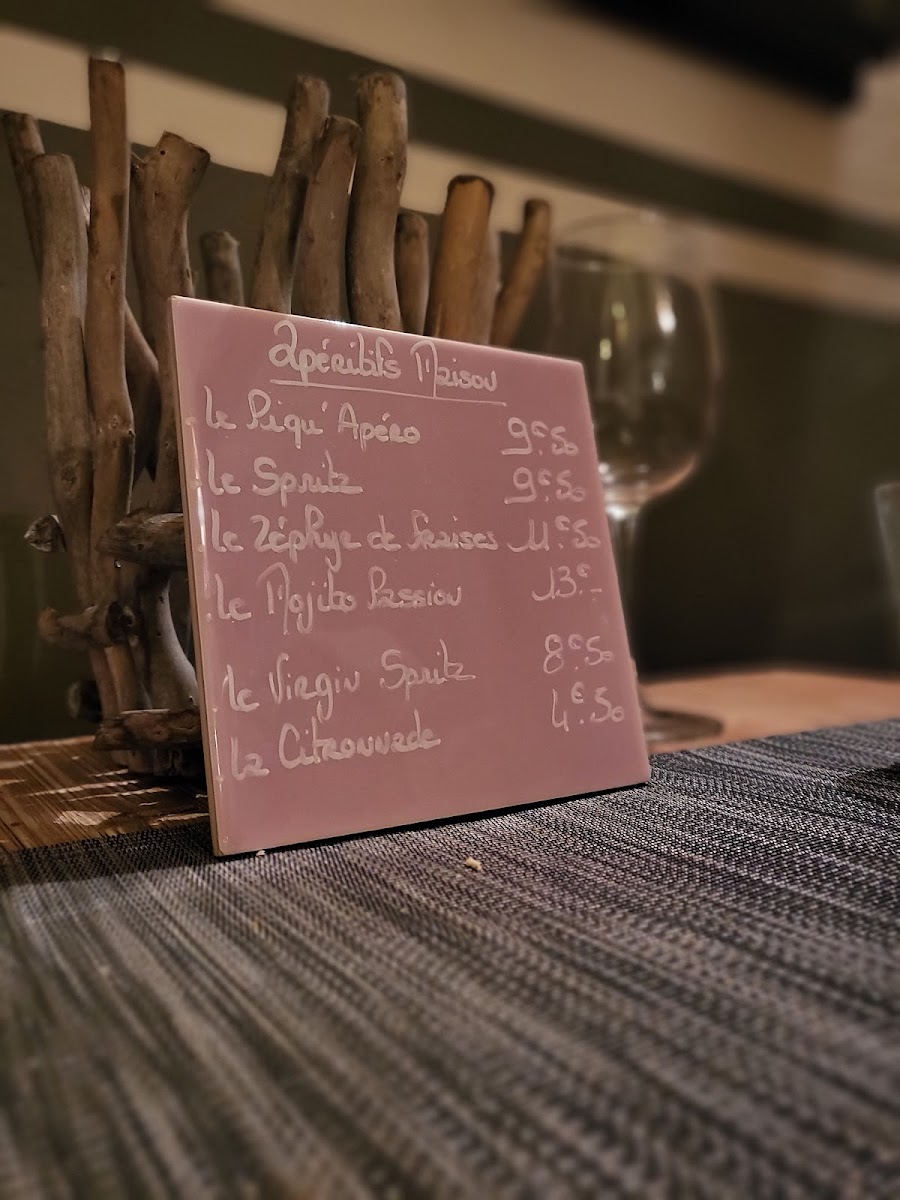 Apéritifs Maison
Le Piqu'Apéro 9€.50
Le Spritz 9€.50
Le Zéphyr de fraises 11€.50
Le Mojito Passion 13€.-
Le Virgin Spritz 8€.50
La Citronnade 4€.50